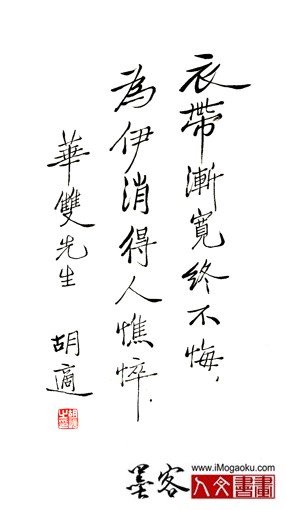 衣帶漸寬終不悔，
為伊消得人憔悴．
華雙先生
胡適
胡適之印
墨客
www.iMogaoku.com
人文書畫